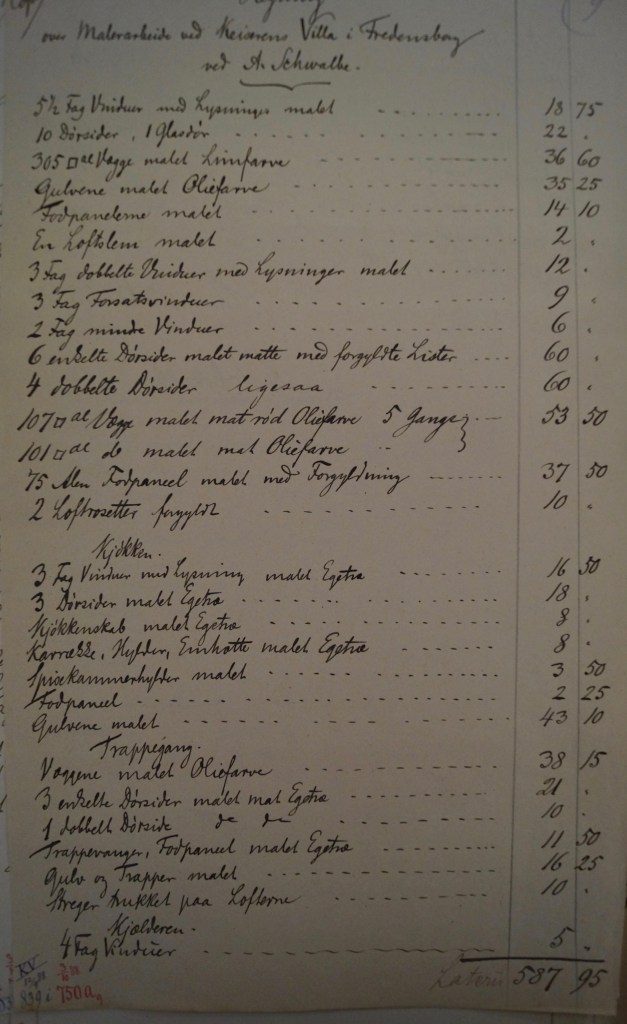 Regning
over Malerarbeide ved Keiserens Villa i Fredensborg
ved A. Schwalbe.
5½ Fag Vinduer med Lysninger malet 18 75
10 Dörsider, 1 Glasdör 22 .
305 □ al Vægge malet Limfarve 36 60
Gulvene malet Oliefarve 35 25
Fodpanelerne malet 14 10
En Loftslem malet 2 .
3 Fag dobbelte Vinduer med Lysninger malet 12 .
3 Fag Forsatsvinduer 9 .
2 Fag mindre Vinduer 6 .
6 enkelte Dörsider malet matte med forgyldte Lister 60 .
4 dobbelte Dörsider ligesaa 60 .
107 □ al Vægge malet mat röd Oliefarve 5 Gange } 53 50
101 □ al do malet mat Oliefarve "
75 Alen Fodpaneel malet med Forgyldning 37 50
2 Loftrosetter forgyldt 10 .
Kjökken.
3 Fag Vinduer med Lysning malet Egetræ 16 50
3 Dörsider malet Egetræ 18 .
Kjökkenskab malet Egetræ 8 .
Karrække, Hylder, Emhætte malet Egetræ 8 .
Spisekammerhylder malet 3 50
Fodpaneel 2 25
Gulvene malet 43 10
Trappegang.
Væggene malet Oliefarve 38 15
3 enkelte Dörsider malet mat Egetræ 21 .
1 dobbelt Dörside do do 10 .
Trappevanger, Fodpaneel malet Egetræ 11 50
Gulv og Trapper malet 16 25
Streger trukket paa Lofterne 10 .
Kjælderen.
4 Fag Vinduer 5 .
Lateris 587 95
KV
839 i 750a